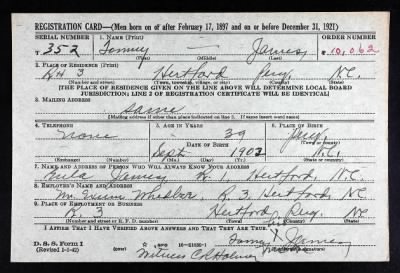 REGISTRATION CARD—(Men born on or after February 17, 1897 and on or before December 31, 1921)
SERIAL NUMBER 1. NAME (Print) ORDER NUMBER
T. 352 James 10,062
(First) (Middle) (Last)
2. PLACE OF RESIDENCE (Print)
3 Hertford Perq. N.C.
(Number and street) (Town, township, village, or city) (County) (State)
[THE PLACE OF RESIDENCE GIVEN ON THE LINE ABOVE WILL DETERMINE LOCAL BOARD
JURISDICTION; LINE 2 OF REGISTRATION CERTIFICATE WILL BE IDENTICAL]
3. MAILING ADDRESS
Same
[Mailing address if other than place indicated on line 2. If same insert word same]
4. TELEPHONE 5. AGE IN YEARS 6. PLACE OF BIRTH
None 39 Perq.
DATE OF BIRTH (Town or county)
Sept 1902 N.C.
(Exchange) (Number) (Mo.) (Day) (Yr.) (State or country)
7. NAME AND ADDRESS OF PERSON WHO WILL ALWAYS KNOW YOUR ADDRESS
Eula James R. 1 Hertford N.C.
8. EMPLOYER'S NAME AND ADDRESS
Mr. R. 3 Hertford, N.C.
9. PLACE OF EMPLOYMENT OR BUSINESS
R. 3 Hertford Perq. N.C.
(Number and street or R. F. D. number) (Town) (County) (State)
I AFFIRM THAT I HAVE VERIFIED ABOVE ANSWERS AND THAT THEY ARE TRUE.
D. S. S. Form 1 James
(Revised 1-1-42) Witness